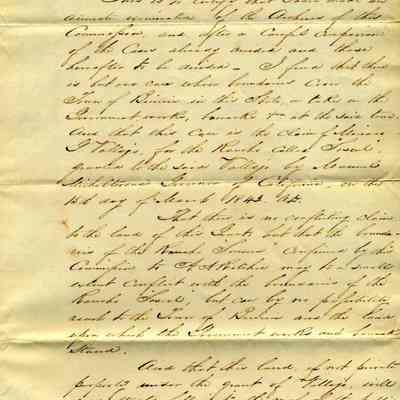 This is to certify that I have made an
accurate examination of the Archives of this
Commission, and after a Careful Comparison
of the Cases already decided and those
hereafter to be decided. I find that there
is but one case whose boundaries Cover the
Town of Benicia in this State, or takes in the
Government works, barracks &c at the said town.
And that this Case is the claim of Mariano
G Vallejo, for the Rancho called Suscol,
granted to the said Vallejo by Manuel
Micheltorena Governor of California, on the
15th day of March 1843. A.D.
That there is no conflicting claim
to the land of this Grant, but that the bounda-
ries of the Rancho "Suisun" confirmed by this
Commission to A. A Ritchie may to a small
extent Conflict with the boundaries of the
Rancho Suscol, but can by no possibility
reach to the Town of Benicia and the land
upon which the Government works and barracks
Stand.
And that this land, if not private
property under the grant of Vallejo, will